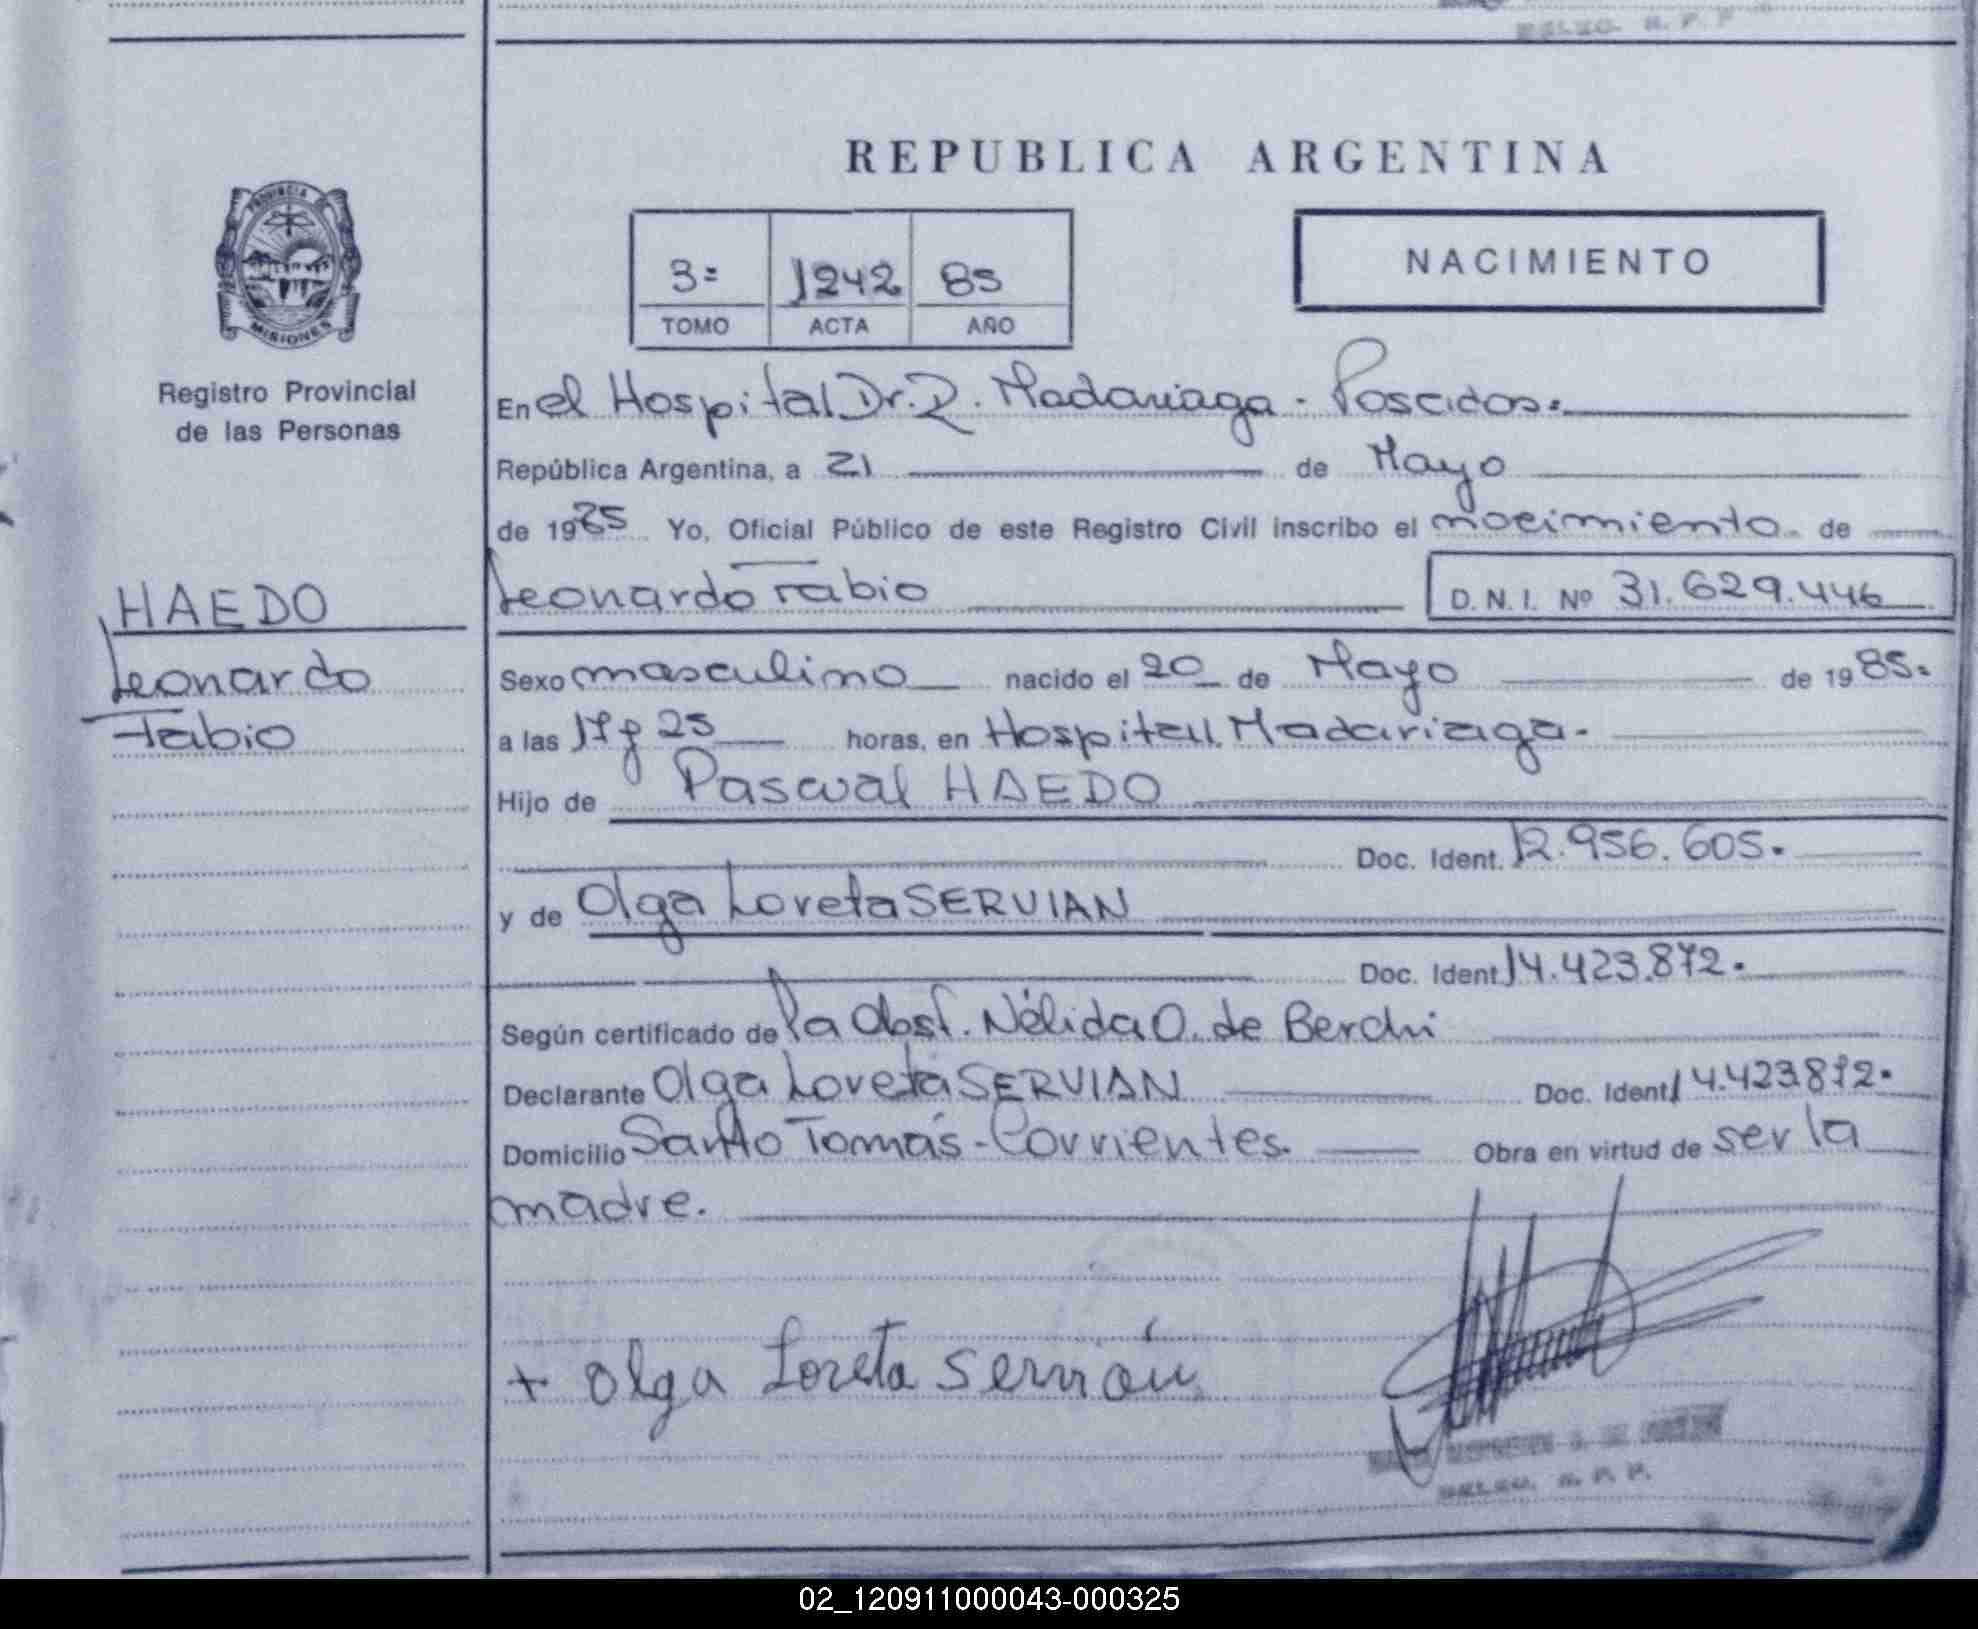 REPUBLICA ARGENTINA
PROVINCIA DE
MISIONES
Registro Provincial
de las Personas
3= 1242 85
TOMO ACTA AÑO
NACIMIENTO
En el Hospital Dr. R. Madariaga - Posadas.
República Argentina, a 21 de Mayo
de 1985 Yo, Oficial Público de este Registro Civil inscribo el nacimiento de
Leonardo Fabio D.N.I. Nº 31.629.446
HAEDO
Leonardo
Fabio
Sexo masculino nacido el 20 de Mayo de 1985.
a las 17 y 25 horas, en Hospital Madariaga.
Hijo de Pascual HAEDO
Doc. Ident. 12.956.605.
y de Olga Loreta SERVIAN
Doc. Ident. 14.423.872.
Según certificado de la Obst. Nélida O. de Berchi
Declarante Olga Loreta SERVIAN Doc. Ident. 14.423.872.
Domicilio Santo Tomás - Corrientes. Obra en virtud de ser la
madre.
+ Olga Loreta Servián
02_120911000043-000325